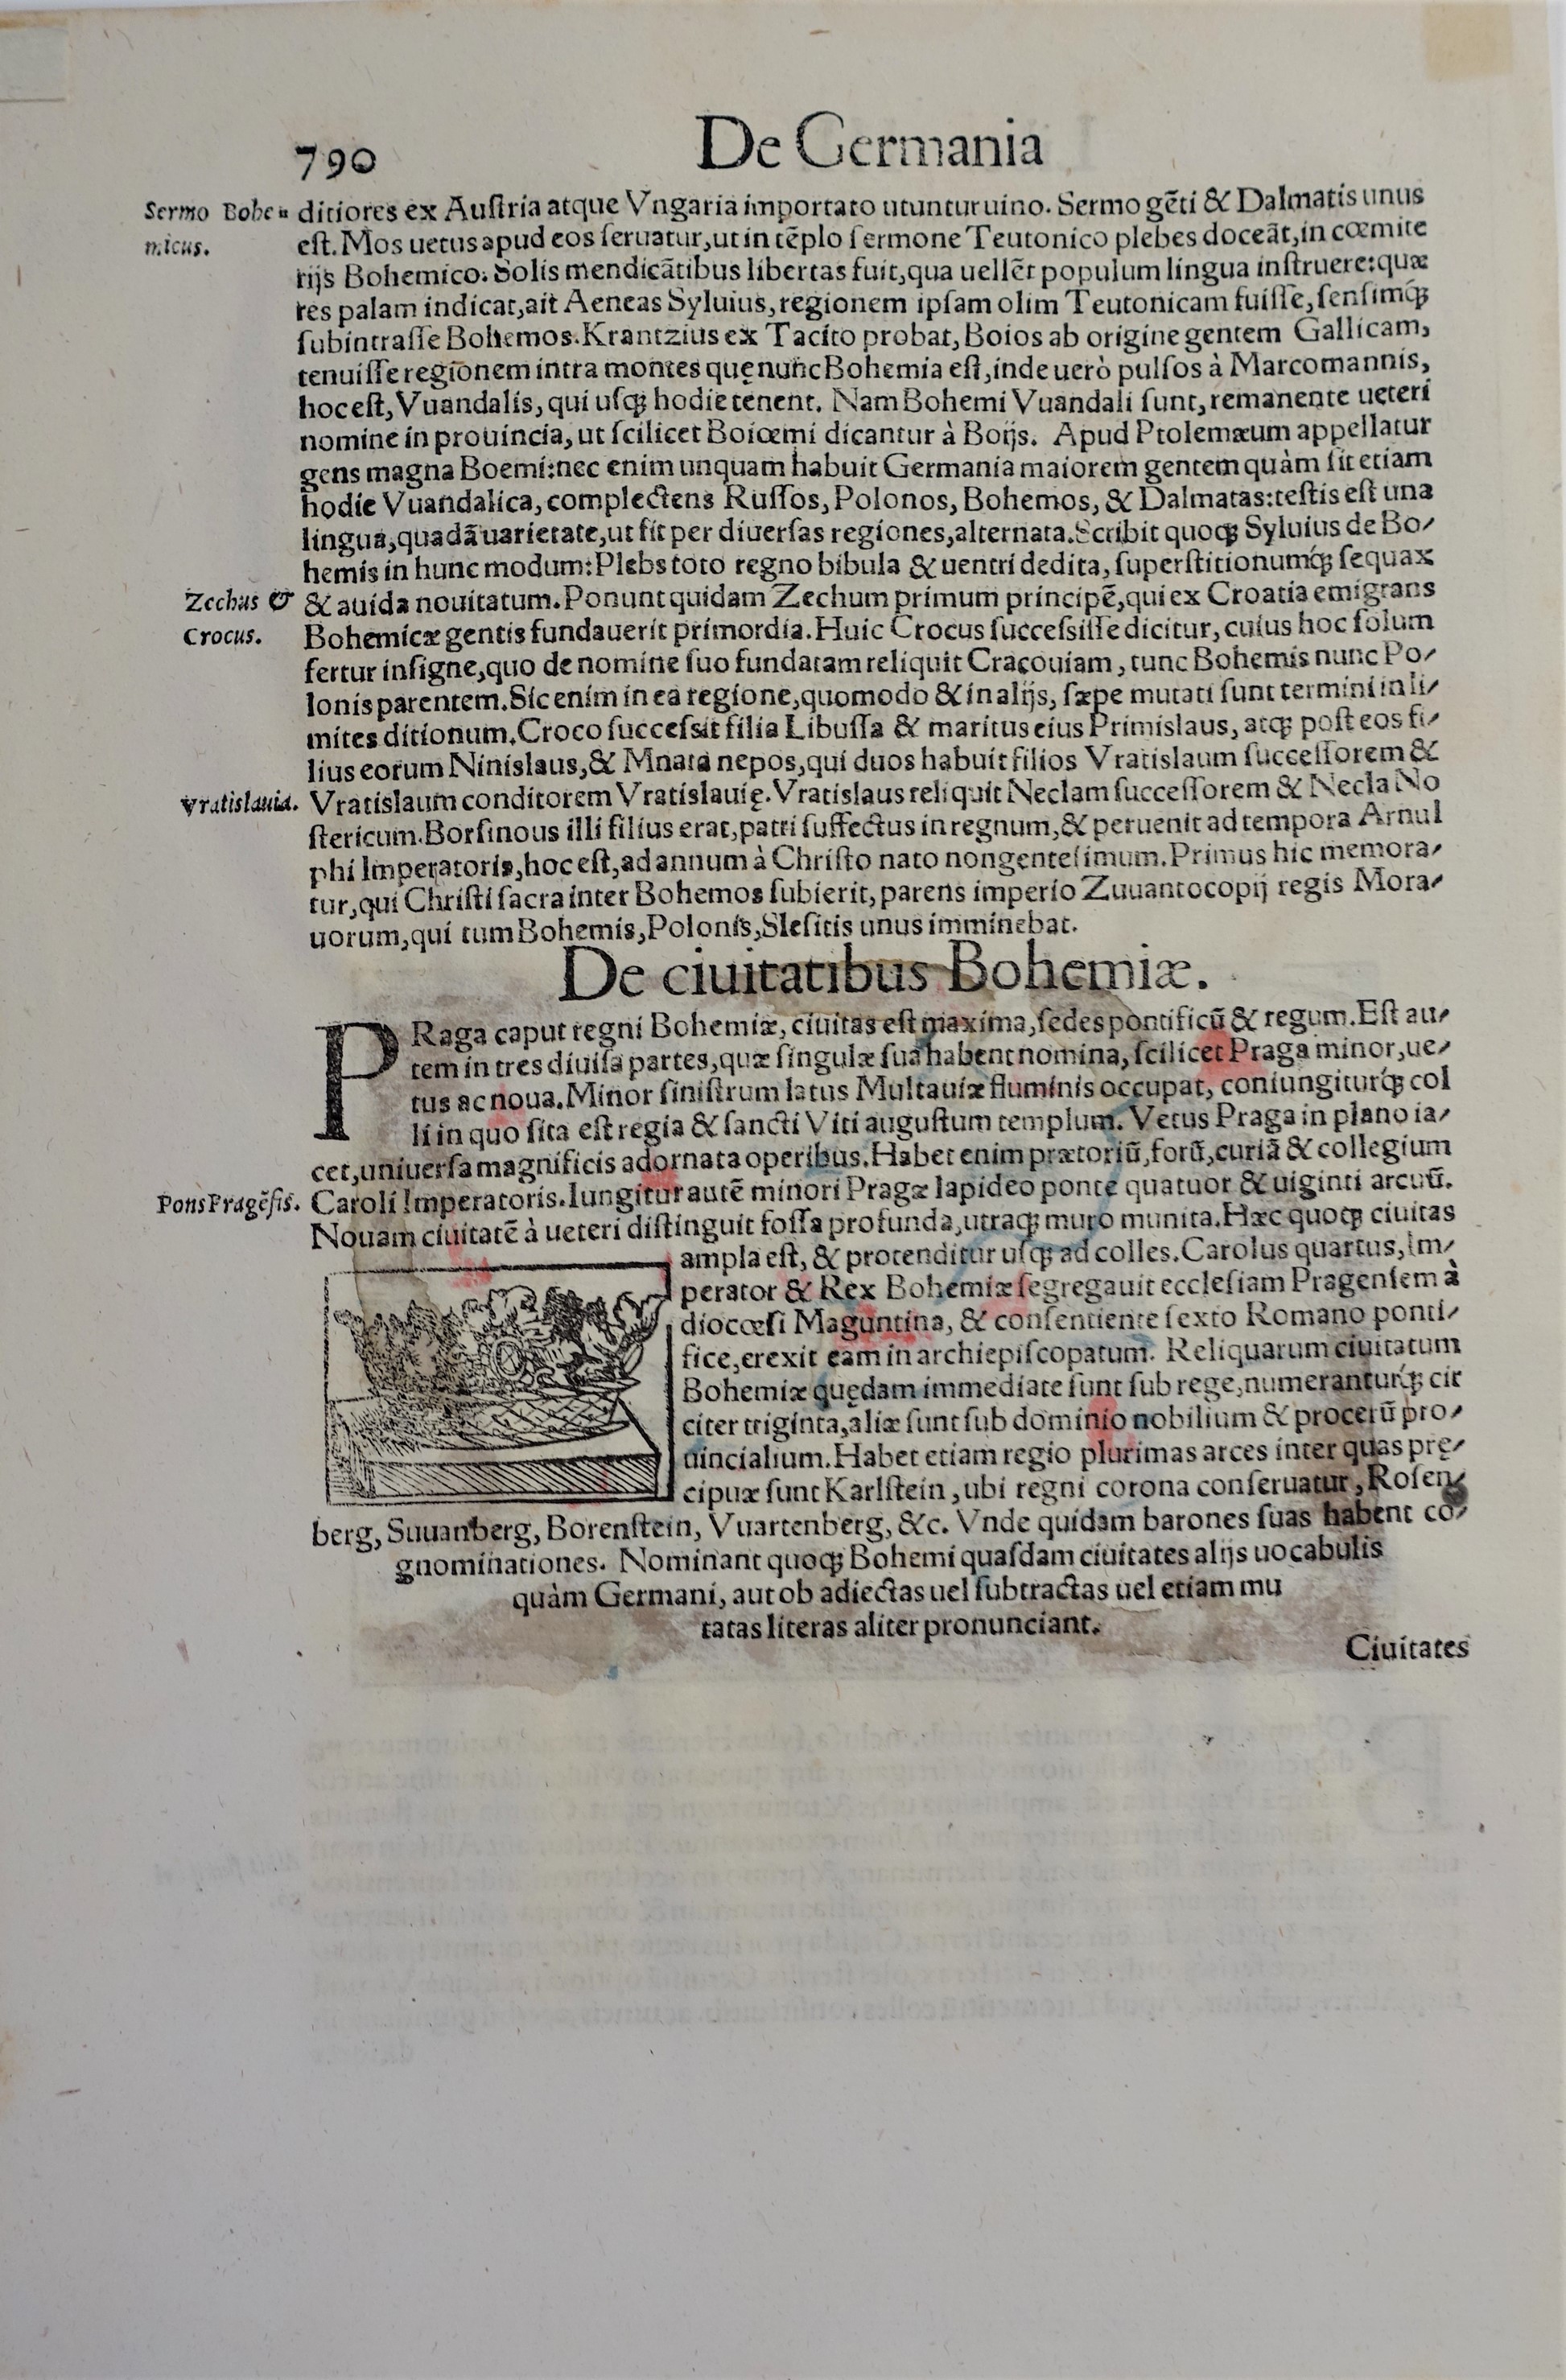 790
De Germania
Sermo Bohe⸗
micus.
ditiores ex Auſtria atque Vngaria importato utuntur uino. Sermo gẽti & Dalmatis unus
eſt. Mos uetus apud eos ſeruatur, ut in tẽplo ſermone Teutonico plebes doceãt, in cœmite
rijs Bohemico. Solis mendicãtibus libertas fuit, qua uellẽt populum lingua inſtruere: quæ
res palam indicat, ait Aeneas Syluius, regionem ipſam olim Teutonicam fuiſſe, ſenſimq́ꝫ
ſubintraſſe Bohemos. Krantzius ex Tacito probat, Boios ab origine gentem Gallicam,
tenuiſſe regionem intra montes quę nunc Bohemia eſt, inde uerò pulſos à Marcomannis,
hoc eſt, Vuandalis, qui uſqꝫ hodie tenent. Nam Bohemi Vuandali ſunt, remanente ueteri
nomine in prouincia, ut ſcilicet Boiœmi dicantur à Boijs. Apud Ptolemæum appellatur
gens magna Boemi: nec enim unquam habuit Germania maiorem gentem quàm ſit etiam
hodie Vuandalica, complectens Ruſſos, Polonos, Bohemos, & Dalmatas: teſtis eſt una
lingua, quadã uarietate, ut fit per diuerſas regiones, alternata. Scribit quoqꝫ Syluius de Bo⸗
hemis in hunc modum: Plebs toto regno bibula & uentri dedita, ſuperſtitionumq́ꝫ ſequax
Zechus &
Crocus.
& auida nouitatum. Ponunt quidam Zechum primum principẽ, qui ex Croatia emigrans
Bohemicæ gentis fundauerit primordia. Huic Crocus ſucceſsiſſe dicitur, cuius hoc ſolum
fertur inſigne, quo de nomine ſuo fundatam reliquit Cracouiam, tunc Bohemis nunc Po⸗
lonis parentem. Sic enim in ea regione, quomodo & in alijs, ſæpe mutati ſunt termini in li⸗
mites ditionum. Croco ſucceſsit filia Libuſſa & maritus eius Primislaus, atqꝫ poſt eos fi⸗
lius eorum Ninislaus, & Mnata nepos, qui duos habuit filios Vratislaum ſucceſſorem &
Vratislauia.
Vratislaum conditorem Vratislauię. Vratislaus reliquit Neclam ſucceſſorem & Necla No
ſtericum. Borſinous illi filius erat, patri ſuffectus in regnum, & peruenit ad tempora Arnul
phi Imperatoris, hoc eſt, ad annum à Chriſto nato nongenteſimum. Primus hic memora⸗
tur, qui Chriſti ſacra inter Bohemos ſubierit, parens imperio Zuuantocopij regis Mora⸗
uorum, qui tum Bohemis, Polonis, Sleſitis unus imminebat.
De ciuitatibus Bohemiæ.
PRaga caput regni Bohemiæ, ciuitas eſt maxima, ſedes pontificũ & regum. Eſt au⸗
tem in tres diuiſa partes, quæ ſingulæ ſua habent nomina, ſcilicet Praga minor, ue⸗
tus ac noua. Minor ſiniſtrum latus Multauiæ fluminis occupat, coniungiturq́ꝫ col
li in quo ſita eſt regia & ſancti Viti auguſtum templum. Vetus Praga in plano ia⸗
cet, uniuerſa magnificis adornata operibus. Habet enim prætoriũ, forũ, curiã & collegium
Pons Pragẽſis.
Caroli Imperatoris. Iungitur autẽ minori Pragæ lapideo ponte quatuor & uiginti arcuũ.
Nouam ciuitatẽ à ueteri diſtinguit foſſa profunda, utraqꝫ muro munita. Hæc quoqꝫ ciuitas
ampla eſt, & protenditur uſqꝫ ad colles. Carolus quartus, Im⸗
perator & Rex Bohemiæ ſegregauit eccleſiam Pragenſem à
diocœſi Maguntina, & conſentiente ſexto Romano ponti⸗
fice, erexit eam in archiepiſcopatum. Reliquarum ciuitatum
Bohemiæ quędam immediate ſunt ſub rege, numeranturq́ꝫ cir
citer triginta, aliæ ſunt ſub dominio nobilium & procerũ pro⸗
uincialium. Habet etiam regio plurimas arces inter quas prę⸗
cipuæ ſunt Karlſtein, ubi regni corona conſeruatur, Roſen⸗
berg, Suuanberg, Borenſtein, Vuartenberg, &c. Vnde quidam barones ſuas habent co⸗
gnominationes. Nominant quoqꝫ Bohemi quaſdam ciuitates alijs uocabulis
quàm Germani, aut ob adiectas uel ſubtractas uel etiam mu
tatas literas aliter pronunciant.
Ciuitates